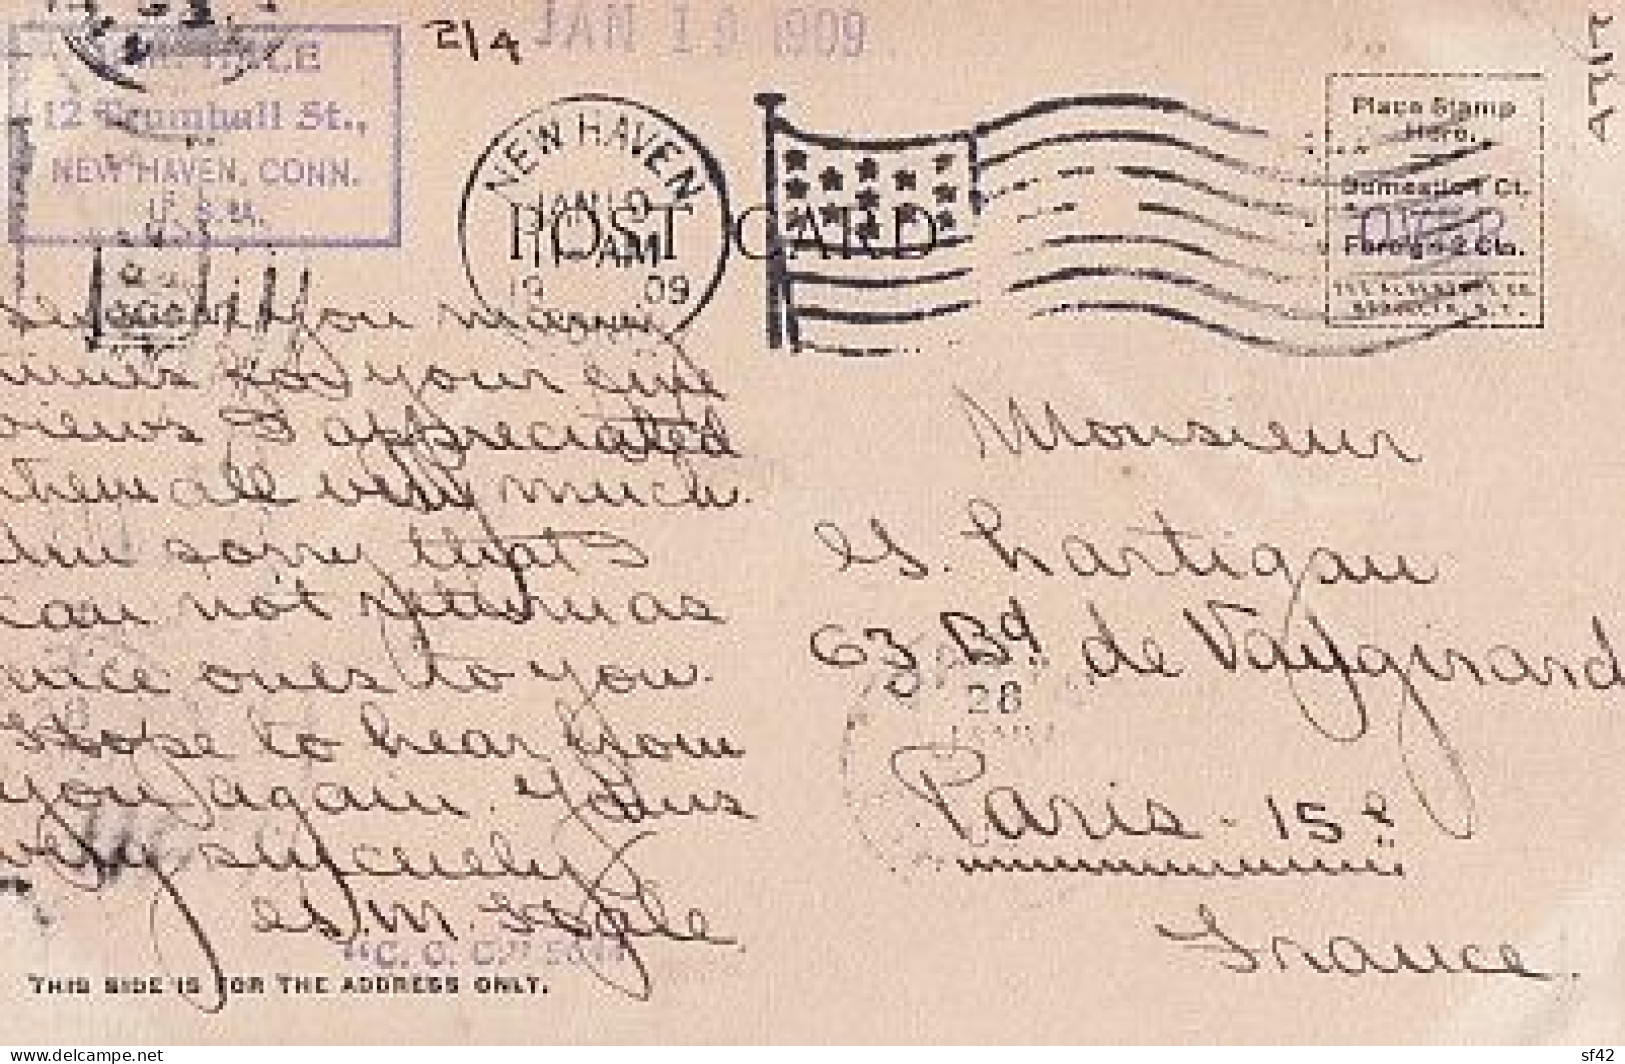 2/4 JAN 19 1909
HALE
12 Trumbull St.,
NEW HAVEN, CONN.
U. S. A.
NEW HAVEN
JAN 19
11 AM
19 09
CONN
POST CARD
Place Stamp
Here.
Domestic 1 Ct.
OVER
Foreign 2 Cts.
BROOKLYN, N.Y.
you many
for your fine
views I appreciated
them all very much.
Am sorry that I
can not return as
nice ones to you.
Hope to hear from
you again. Yours
very sincerely
G. M. Hale
Monsieur
G. Lartigau
63 Bd de Vaugirard
28
Paris - 15e
France.
THIS SIDE IS FOR THE ADDRESS ONLY.